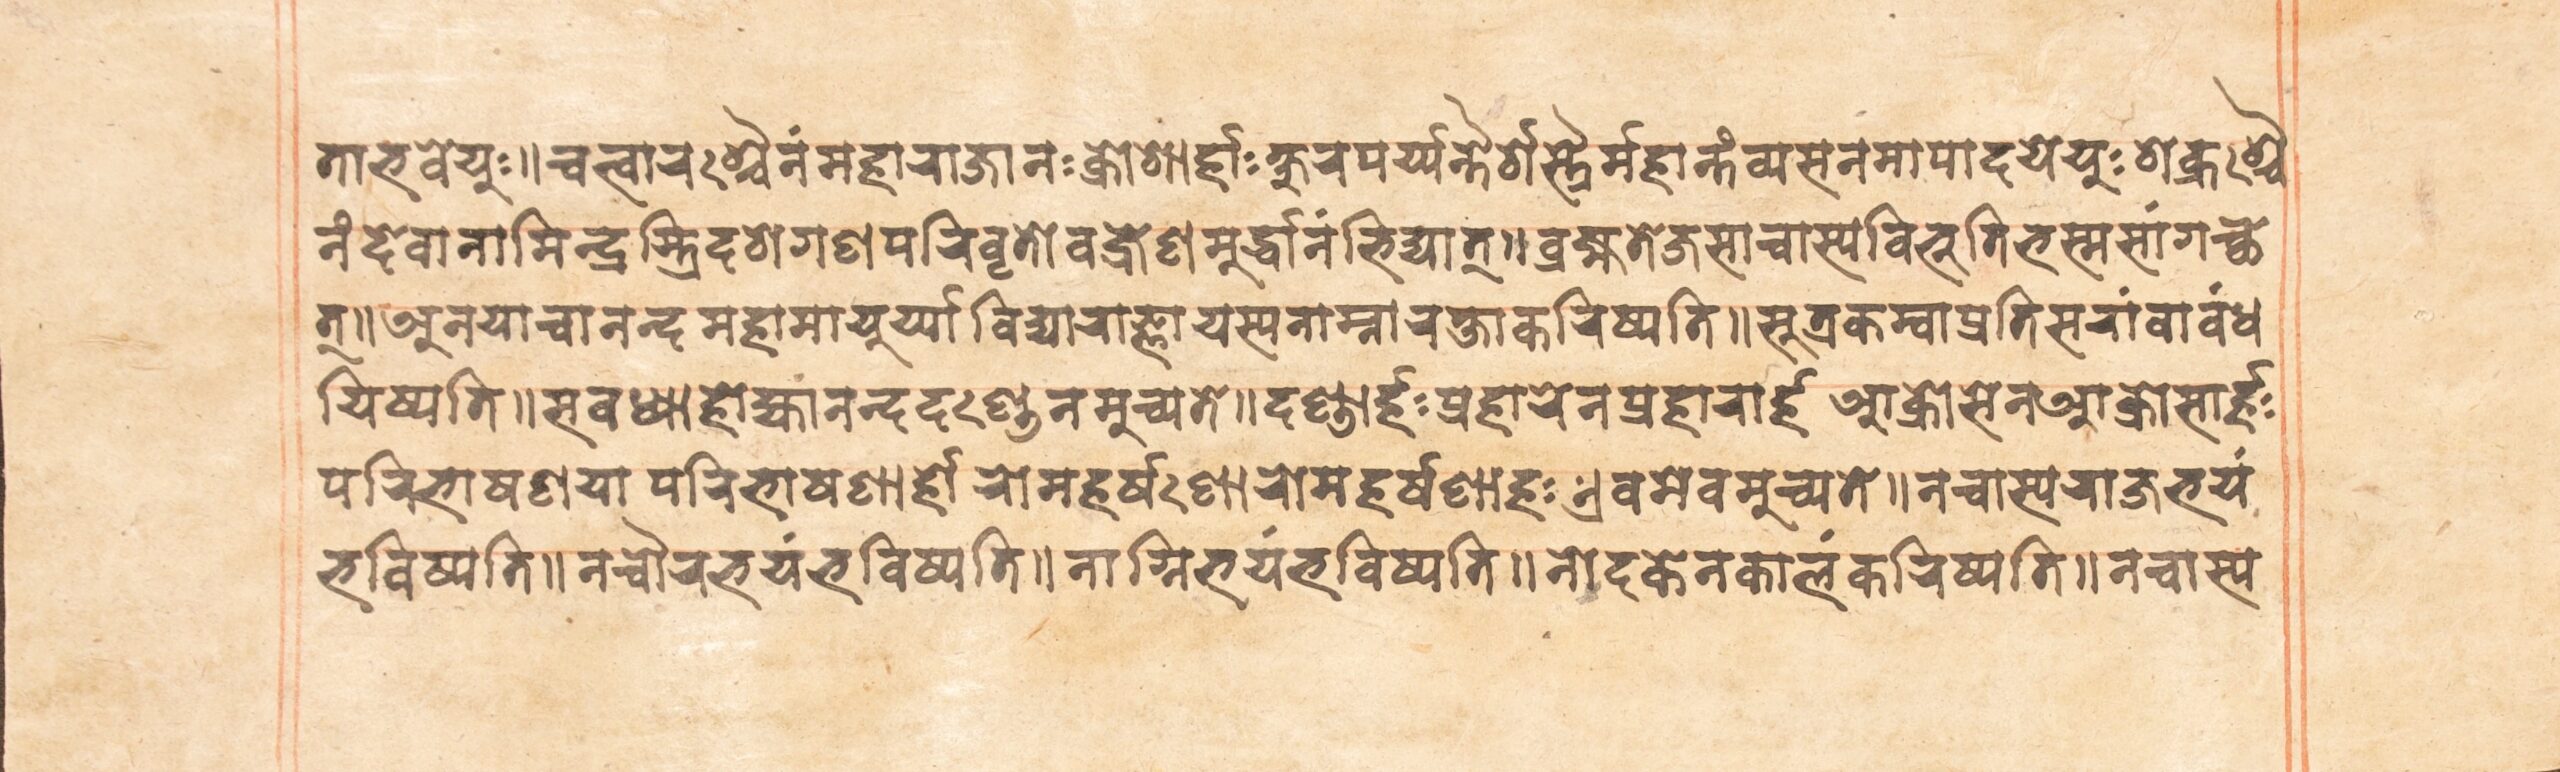 ताभवेयुः॥चत्वारऽश्चैनंमहाराजानःक्रोशार्हाःक्षुरपर्य्यन्तैर्शस्त्रैर्महान्तंव्यसनमापादयेयुःशक्रऽश्चै
नंदेवानामिन्द्रस्त्रिदशगणपरिवृतोवज्रेणमुर्द्धानंभिद्यात्॥व्रह्मतेजसाचास्यविभुतिभस्मसांगच्छे
त्॥अनयाचानन्दमहामायुर्य्याविद्याराज्ञायस्यनाम्नारक्षाकरिष्यति॥सुत्रकम्वाप्रतिसरांवावंध
यिष्यति॥सवध्याहोह्यानन्ददऽण्डनमुच्यते॥दण्डार्हःप्रहारेनप्रहारार्ह आक्रोसेनआक्रोसार्हः
परिभाषणया परिभाषणार्हो रोमहर्षऽणारोमहर्षणाहः एवमेवमुच्यते॥नचास्यराजभयं
भविष्यति॥नचौरभयंभविष्यति॥नाग्निभयंभविष्यति॥नोदकेनकालंकरिष्यति॥नचास्य